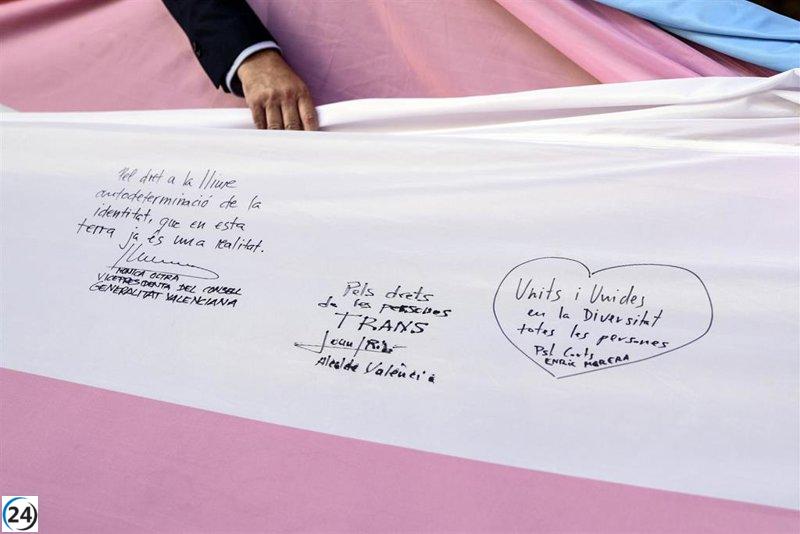 Pel dret a la lliure
autodeterminació de la
identitat, que en esta
terra ja és una realitat.
MONICA OLTRA
VICEPRESIDENTA DEL CONSELL
GENERALITAT VALENCIANA
Pels drets
de les persones
TRANS
Joan Ribó
Alcalde València
Units i Unides
en la Diversitat
totes les persones
Pst Corts
ENRIC MORERA
24